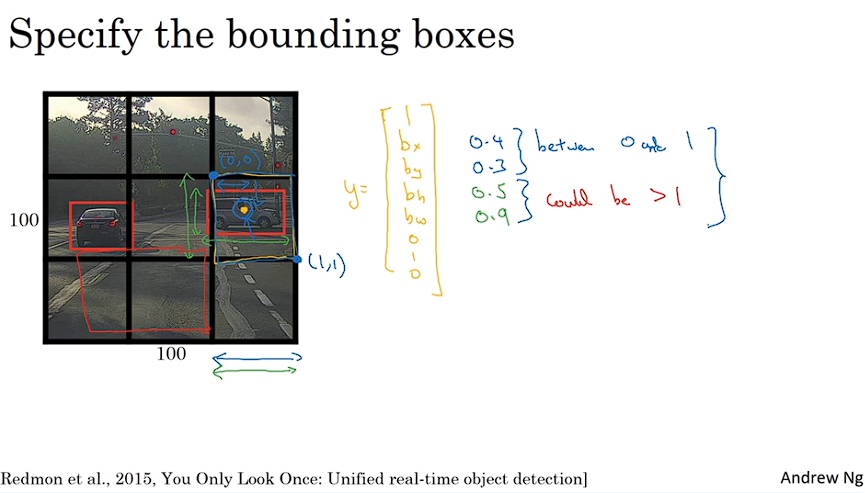 Specify the bounding boxes
(0,0)
100
(1,1)
100
y=
1
bx
by
bh
bw
0
1
0
0.4
0.3
between 0 and 1
0.5
0.9
could be >1
Redmon et al., 2015, You Only Look Once: Unified real-time object detection]
Andrew Ng